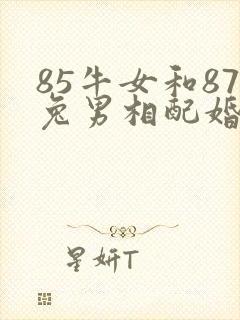 85牛女和87
兔男相配婚
星妍T